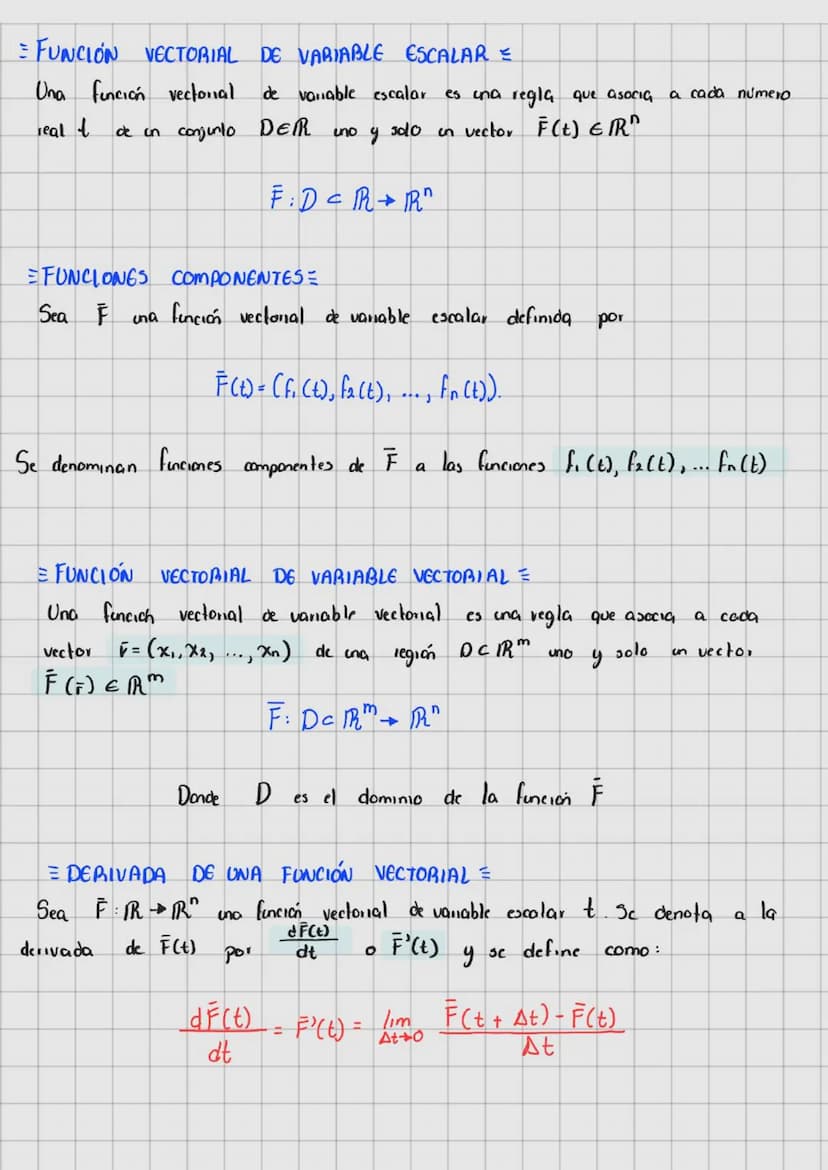 ≡ FUNCIÓN VECTORIAL DE VARIABLE ESCALAR ≡
Una función vectorial de variable escalar es una regla que asocia a cada número
real t de un conjunto D∈ℝ uno y solo un vector F̄(t) ∈ ℝⁿ
F̄: D ⊂ ℝ → ℝⁿ
≡ FUNCIONES COMPONENTES ≡
Sea F̄ una función vectorial de variable escalar definida por
F̄(t) = (f₁(t), f₂(t), ..., fₙ(t)).
Se denominan funciones componentes de F̄ a las funciones f₁(t), f₂(t), ... fₙ(t)
≡ FUNCIÓN VECTORIAL DE VARIABLE VECTORIAL ≡
Una función vectorial de variable vectorial es una regla que asocia a cada
vector r̄ = (x₁, x₂, ..., xₙ) de una región D ⊂ ℝᵐ uno y solo un vector
F̄(r̄) ∈ ℝᵐ
F̄: D ⊂ ℝᵐ → ℝⁿ
Donde D es el dominio de la función F̄
≡ DERIVADA DE UNA FUNCIÓN VECTORIAL ≡
Sea F̄: ℝ → ℝⁿ una función vectorial de variable escalar t. Se denota a la
derivada de F̄(t) por dF̄(t)/dt o F̄'(t) y se define como:
dF̄(t)/dt = F̄'(t) = lim Δt→0 F̄(t + Δt) - F̄(t) / Δt